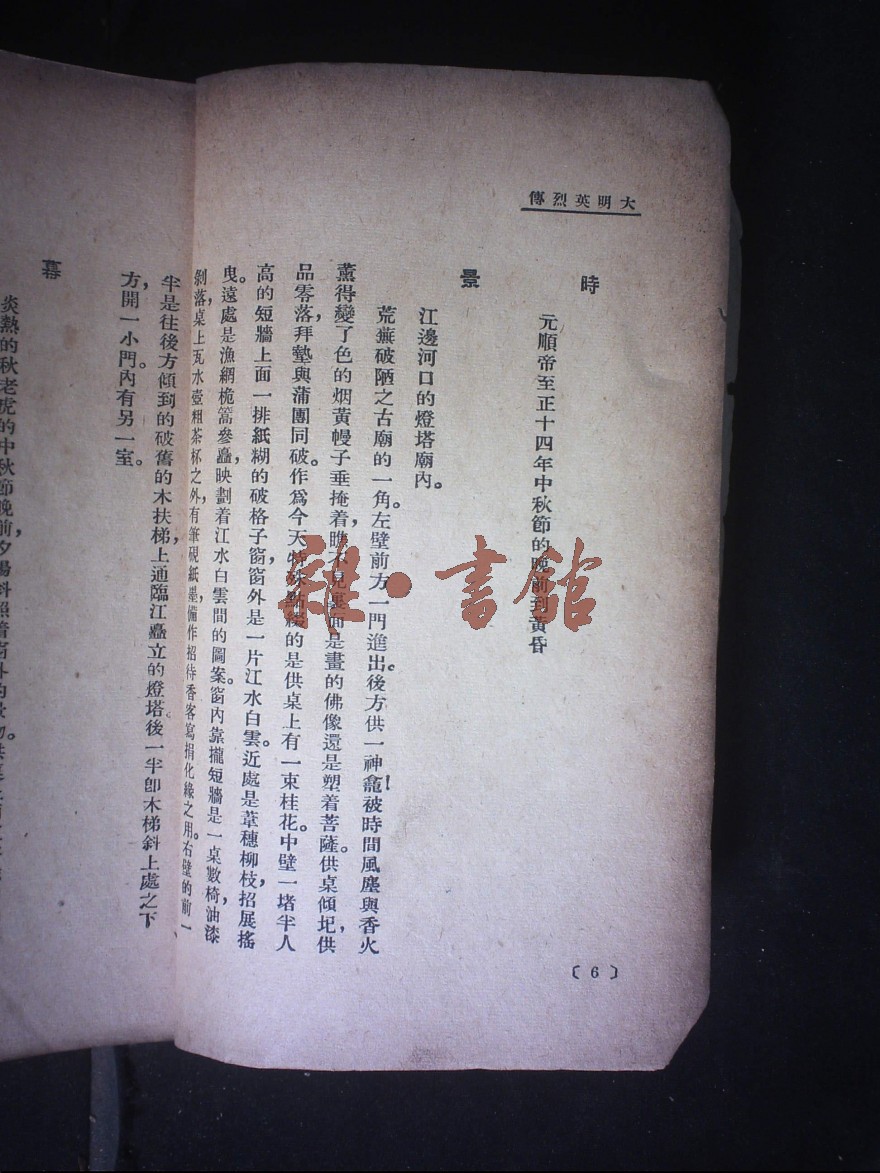 大明英烈傳
時
元順帝至正十四年中秋節的晚前到黃昏
景
江邊河口的燈塔廟內。
荒蕪破陋之古廟的一角。左壁前方一門進出。後方供一神龕被時間風塵與香火
薰得變了色的烟黃幔子垂掩着，瞧不見裏面是畫的佛像還是塑着菩薩。供桌傾圯，供
品零落，拜墊與蒲團同破。作爲今天特殊點綴的是供桌上有一束桂花。中壁一堵半人
高的短牆上面一排紙糊的破格子窗，窗外是一片江水白雲。近處是葦穗柳枝，招展搖
曳。遠處是漁網桅篙參矗，映劃着江水白雲間的圖案。窗內靠攏短牆是一桌數椅，油漆
剝落，桌上瓦水壺粗茶杯之外，有筆硯紙墨，備作招待香客寫捐化緣之用。右壁的前一
半是往後方傾到的破舊的木扶梯，上通臨江矗立的燈塔。後一半卽木梯斜上處之下
方開一小門，內有另一室。
幕
炎熱的秋老虎的中秋節晚前，夕陽斜照着窗外的
〔6〕
雜·書館